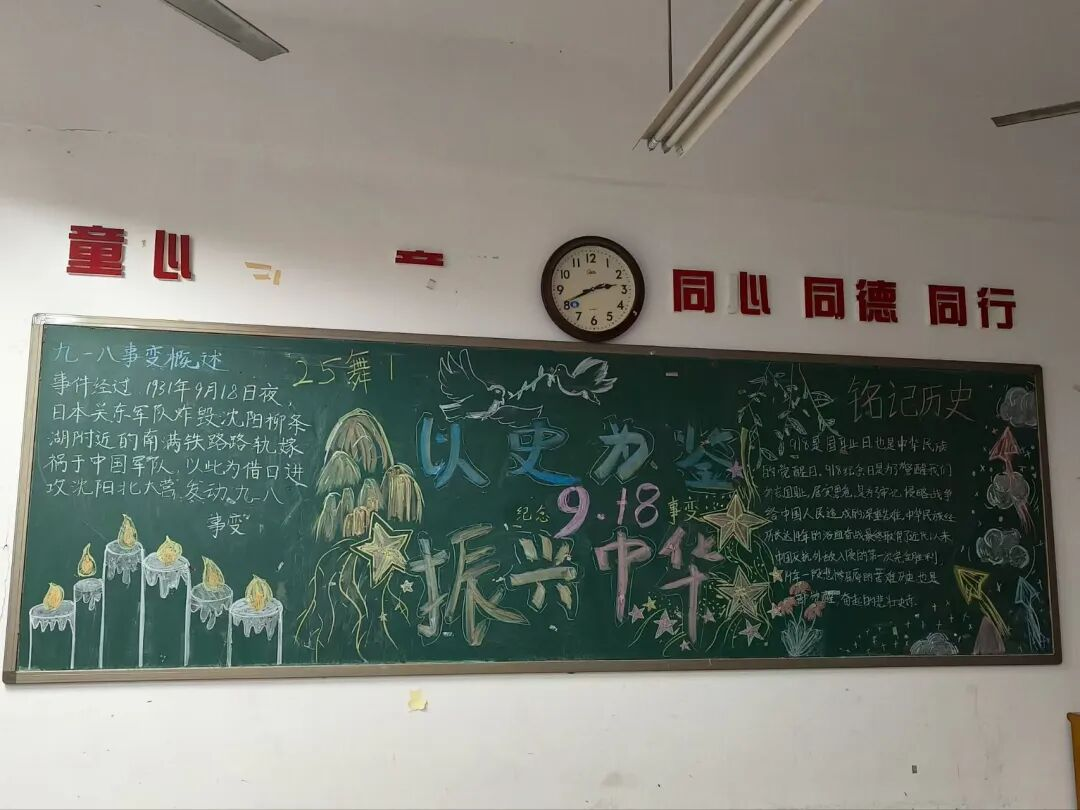 童心
同心 同德 同行
12
1
2
3
6
7
8
9
10
11
九一八事变概述
事件经过 1931年9月18日夜,
日本关东军队炸毁沈阳柳条
湖附近的南满铁路路轨嫁
祸于中国军队,以此为借口进
攻沈阳北大营,发动"九一八
事变"
25舞1
以史为鉴
纪念 9.18 事变
振兴中华
铭记历史
918是国耻日也是中华民族
的觉醒日,918纪念日是为了警醒我们
勿忘国耻,居安思危,
给中国人民造成的深重苦难,中华民族经
中国反抗外敌入侵的第一次完全胜利,
苦难历史也是
奋起的悲壮史诗